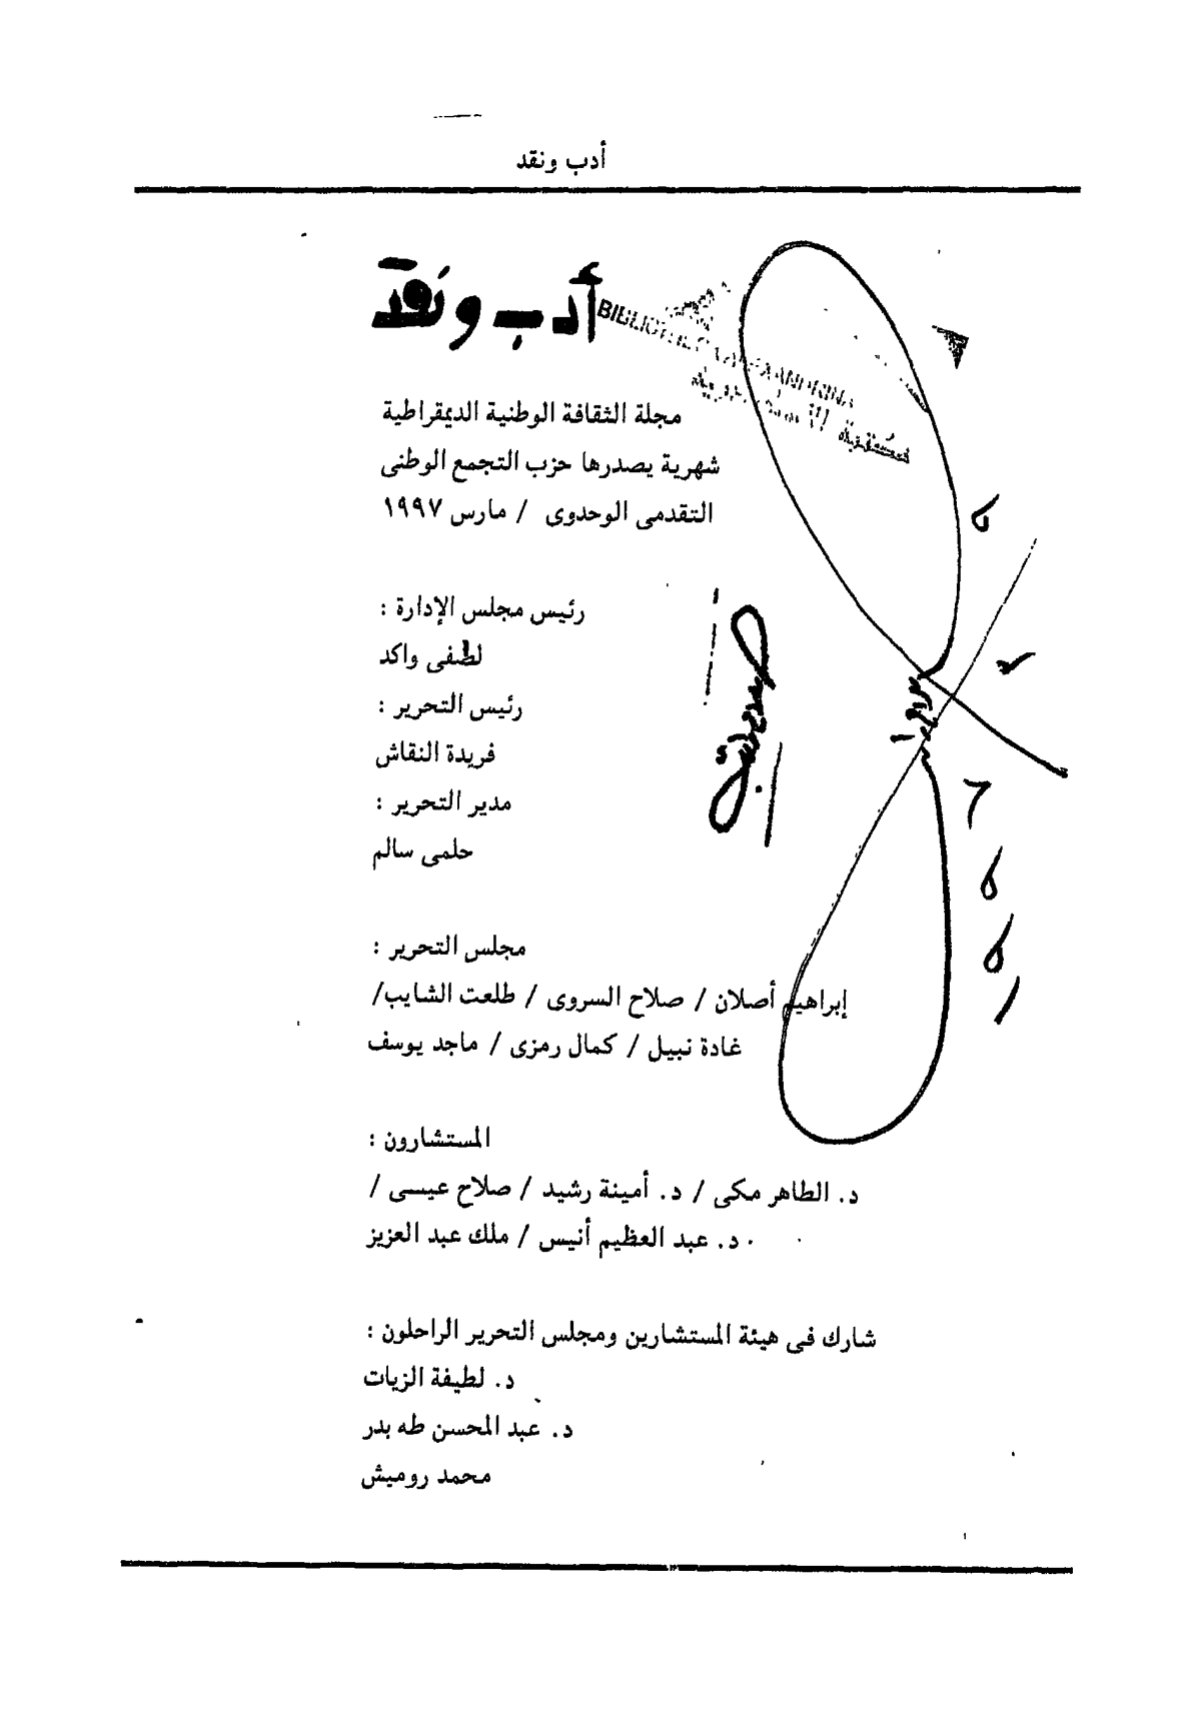 أدب ونقد
أدب ونقد
BIBLIOTHECA ALEXANDRINA
مجلة الثقافة الوطنية الديمقراطية
شهرية يصدرها حزب التجمع الوطنى
التقدمى الوحدوى / مارس ١٩٩٧
رئيس مجلس الإدارة :
لطفى واكد
رئيس التحرير :
فريدة النقاش
مدير التحرير :
حلمى سالم
مجلس التحرير :
إبراهيم أصلان / صلاح السروى / طلعت الشايب/
غادة نبيل / كمال رمزى / ماجد يوسف
المستشارون :
د. الطاهر مكى / د. أمينة رشيد / صلاح عيسى /
د. عبد العظيم أنيس / ملك عبد العزيز
شارك فى هيئة المستشارين ومجلس التحرير الراحلون :
د. لطيفة الزيات
د. عبد المحسن طه بدر
محمد روميش